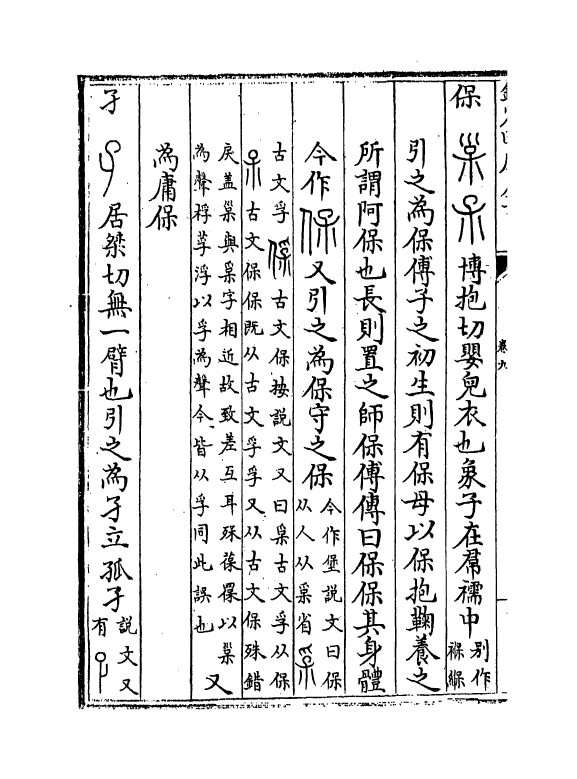 保 𣎼 𣎼 博抱切嬰兒衣也象子在帬襦中 別作褓緥
引之為保傅子之初生則有保母以保抱鞠養之
所謂阿保也長則置之師保傅傅曰保保其身體
今作保又引之為保守之保 今作堡說文曰保从人从𤓽省
古文孚 古文保按說文又曰𤓽古文孚从保
古文保保既从古文孚孚又从古文保殊錯
戾盖𣎼與𤓽字相近故致差互耳殊葆褓以𣎼
為聲稃莩浮以孚為聲今皆从孚同此誤也 又
為庸保
孑 居桀切無一臂也引之為孑立孤孑 說文又有
卷九